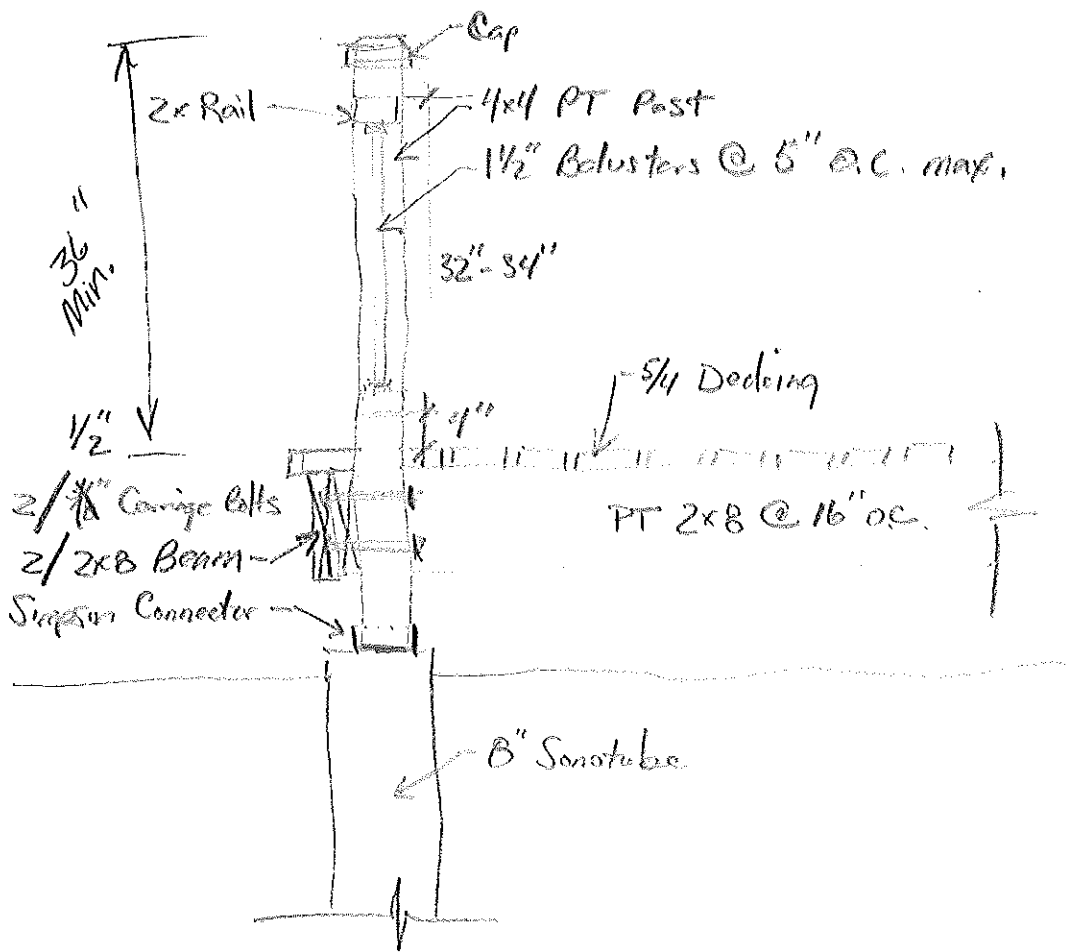 Cap
2x Rail
4x4 PT Post
1½" Balusters @ 5" O.C. max.
36"
Min.
32"-34"
5/4 Decking
4"
½"
2/ " Carriage Bolts
PT 2x8 @ 16" O.C.
2/ 2x8 Beam
Simpson Connector
8" Sonotube